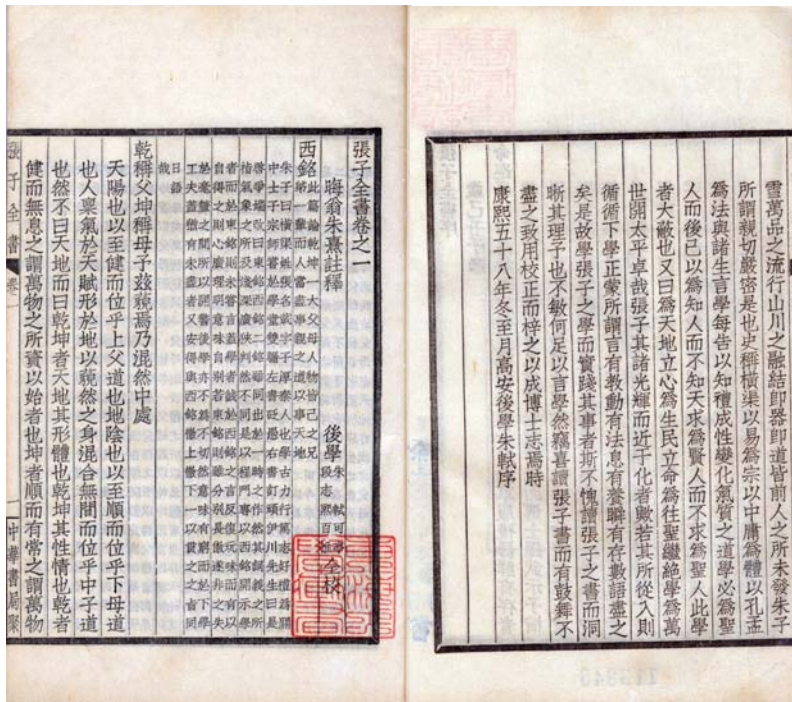 雪萬品之流行山川之融結即器即道皆前人之所未發朱子
所謂親切嚴密是也史稱橫渠以易為宗以中庸為體以孔孟
為法與諸生言學每告以知禮成性變化氣質之道學必為聖
人而後已以為知人而不知天求為賢人而不求為聖人此學
者大蔽也又曰為天地立心為生民立命為往聖繼絕學為萬
世開太平卓哉張子其諸光輝而近于化者歟若其所從入則
循循下學正蒙所謂言有教動有法息有養瞬有存數語盡之
矣是故學張子之學而實踐其事者斯不愧讀張子之書而洞
晰其理子也不敏何足以言學然竊喜讀張子書而有鼓舞不
盡之致用校正而梓之以成博士志焉時
康熙五十八年冬至月高安後學朱軾序
張子全書卷之一
晦翁朱熹註釋
後學朱軾可亭
段志熙百維
全校
西銘
此篇論乾坤一大父母人物皆己之兄
弟一輩而人當盡事親之道以事天地
朱子曰橫渠姓張名載字子厚秦人也學古力行篤志好禮為關
中士子宗師嘗於學堂雙牖左書砭愚右書訂頑伊川先生曰是
啓爭端改曰東銘西銘二銘雖同出於一時之作然其詞義之所
指氣象之所及淺深廣狹判然不同是以程門專以西銘開示學
者而於東銘則未嘗言蓋學者誠於西銘之言反復玩味而有以
自得之則心廣理明意味自別若東銘則雖分別長傲遂非之失
於毫釐之間所以開警後學亦不為不切然意味有窮而於下學
工夫蓋猶有未盡者又安得與西銘徹上徹下一以貫之之旨同
日語
哉
乾稱父坤稱母予茲藐焉乃混然中處
天陽也以至健而位乎上父道也地陰也以至順而位乎下母道
也人稟氣於天賦形於地以藐然之身混合無間而位乎中子道
也然不曰天地而曰乾坤者天地其形體也乾坤其性情也乾者
健而無息之謂萬物之所資以始者也坤者順而有常之謂萬物
張子全書 卷一 中華書局聚